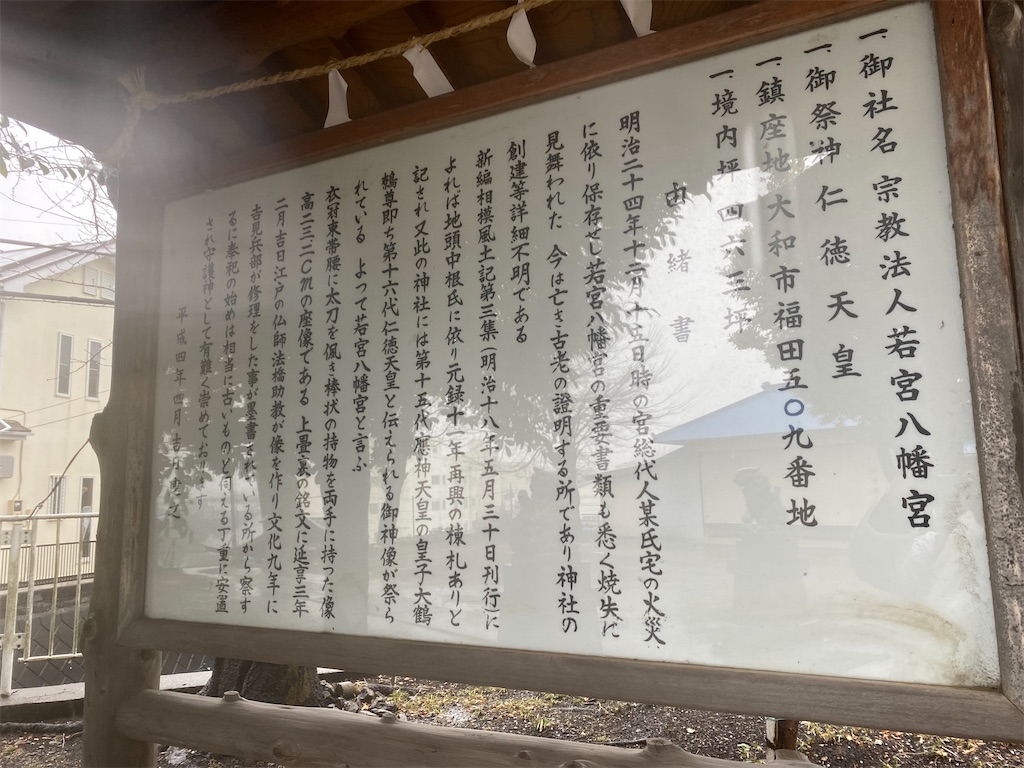 一、御社名 宗教法人若宮八幡宮
一、御祭神 仁徳天皇
一、鎮座地 大和市福田五〇九番地
一、境内坪 四六三坪
由緒書
明治二十四年十二月十五日時の宮総代人某氏宅の火災
に依り保存せし若宮八幡宮の重要書類も悉く焼失に
見舞われた 今は亡き古老の證明する所であり神社の
創建等詳細不明である
新編相模風土記第三集(明治十八年五月三十日刊行)に
よれば地頭中根氏に依り元録十二年再興の棟札ありと
記され又此の神社には第十五代應神天皇の皇子大鶴
鷦尊即ち第十六代仁徳天皇と伝えられる御神像が祭ら
れている よって若宮八幡宮と言ふ
衣羽束帯腰に太刀を佩き棒状の持物を両手に持った像
高三三二〇mの座像である 上畳裏の銘文に延享三年
二月吉日江戸の仏師法橋助教が像を作り文化九年に
吉見兵部が修理をした事が墨書されている所から察す
るに奉祝の始めは相当に古いものと
る丁重に安置
され守護神として有難く崇めております
平成四年四月吉日